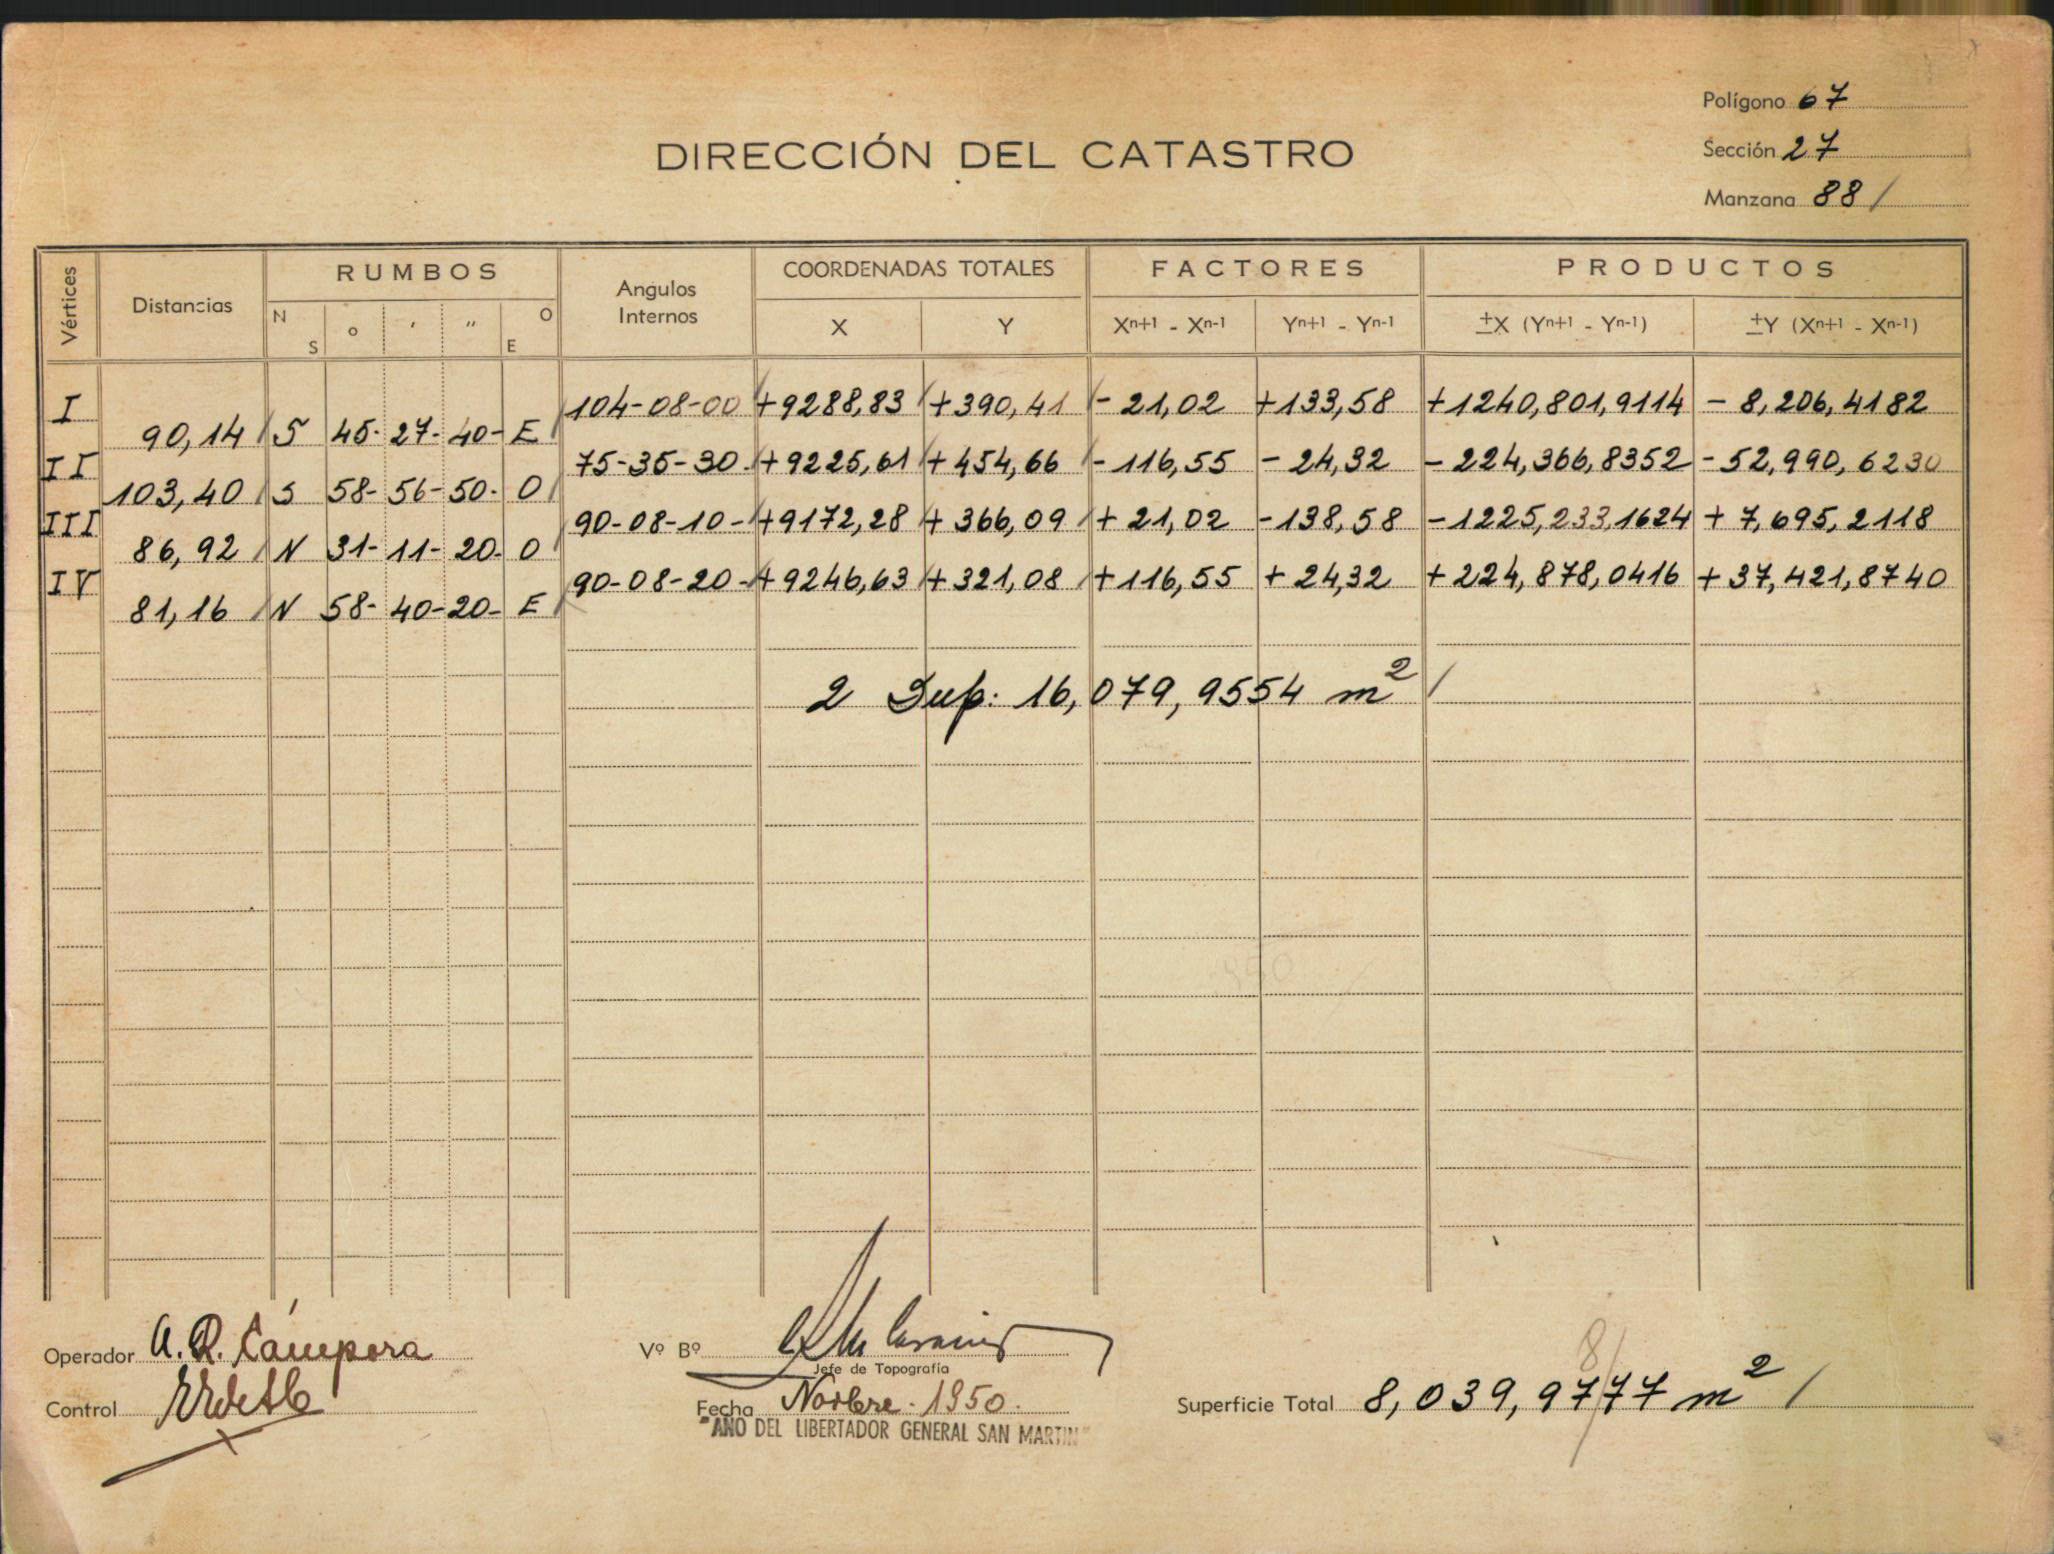 Polígono 67
Sección 27
Manzana 88 /
DIRECCIÓN DEL CATASTRO
Vértices Distancias RUMBOS Angulos Internos COORDENADAS TOTALES FACTORES PRODUCTOS
N S o ' " O E X Y Xn+1 - Xn-1 Yn+1 - Yn-1 ±X (Yn+1 - Yn-1) ±Y (Xn+1 - Xn-1)
I 104-08-00 +9288,83 +390,41 -21,02 +133,58 +1240,801,9114 -8,206,4182
90,14 S 45-27-40- E
II 75-35-30 +9225,61 +454,66 -116,55 -24,32 -224,366,8352 -52,990,6230
103,40 S 58-56-50- O
III 90-08-10- +9172,28 +366,09 +21,02 -138,58 -1225,233,1624 +7,695,2118
86,92 N 31-11-20- O
IV 90-08-20- +9246,63 +321,08 +116,55 +24,32 +224,878,0416 +37,421,8740
81,16 N 58-40-20- E
2 Sup: 16,079,9554 m2 /
Operador A. R. Cámpora
Vº Bº
Jefe de Topografía
Control
Fecha Novbre. 1950.
"AÑO DEL LIBERTADOR GENERAL SAN MARTIN"
8/
Superficie Total 8,039,9777 m2 /